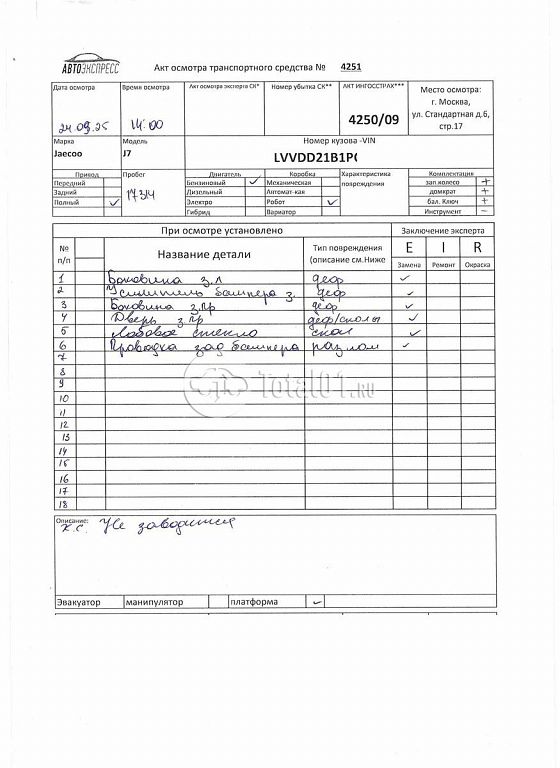 АВТОЭКСПРЕСС
Акт осмотра транспортного средства № 4251
Дата осмотра
Время осмотра
Акт осмотра эксперта СК*
Номер убытка СК**
АКТ ИНГОССТРАХ***
Место осмотра:
г. Москва,
ул. Стандартная д.6,
стр.17
24.09.25
14:00
4250/09
Марка
Модель
Номер кузова -VIN
Jaecoo
J7
LVVDD21B1P
Привод
Пробег
Двигатель
Коробка
Характеристика
повреждения
Комплектация
Передний
Бензиновый ✓
Механическая
зап.колесо +
Задний
1734
Дизельный
Автомат-кая
домкрат +
Полный ✓
Электро
Робот ✓
бал. Ключ +
Гибрид
Вариатор
Инструмент –
При осмотре установлено
Заключение эксперта
№
п/п
Название детали
Тип повреждения
(описание см.Ниже
E I R
Замена Ремонт Окраска
1 Боковина з.л деф ✓
2 Усилитель бампера з. деф ✓
3 Боковина з.пр деф ✓
4 Дверь з.пр деф/сколы ✓
5 Лобовое стекло скол ✓
6 Проводка зад бампера разлом ✓
7
8
9
Total01.RU
10
11
12
13
14
15
16
17
18
Описание:
х.с. Не заводится
Эвакуатор манипулятор платформа ✓